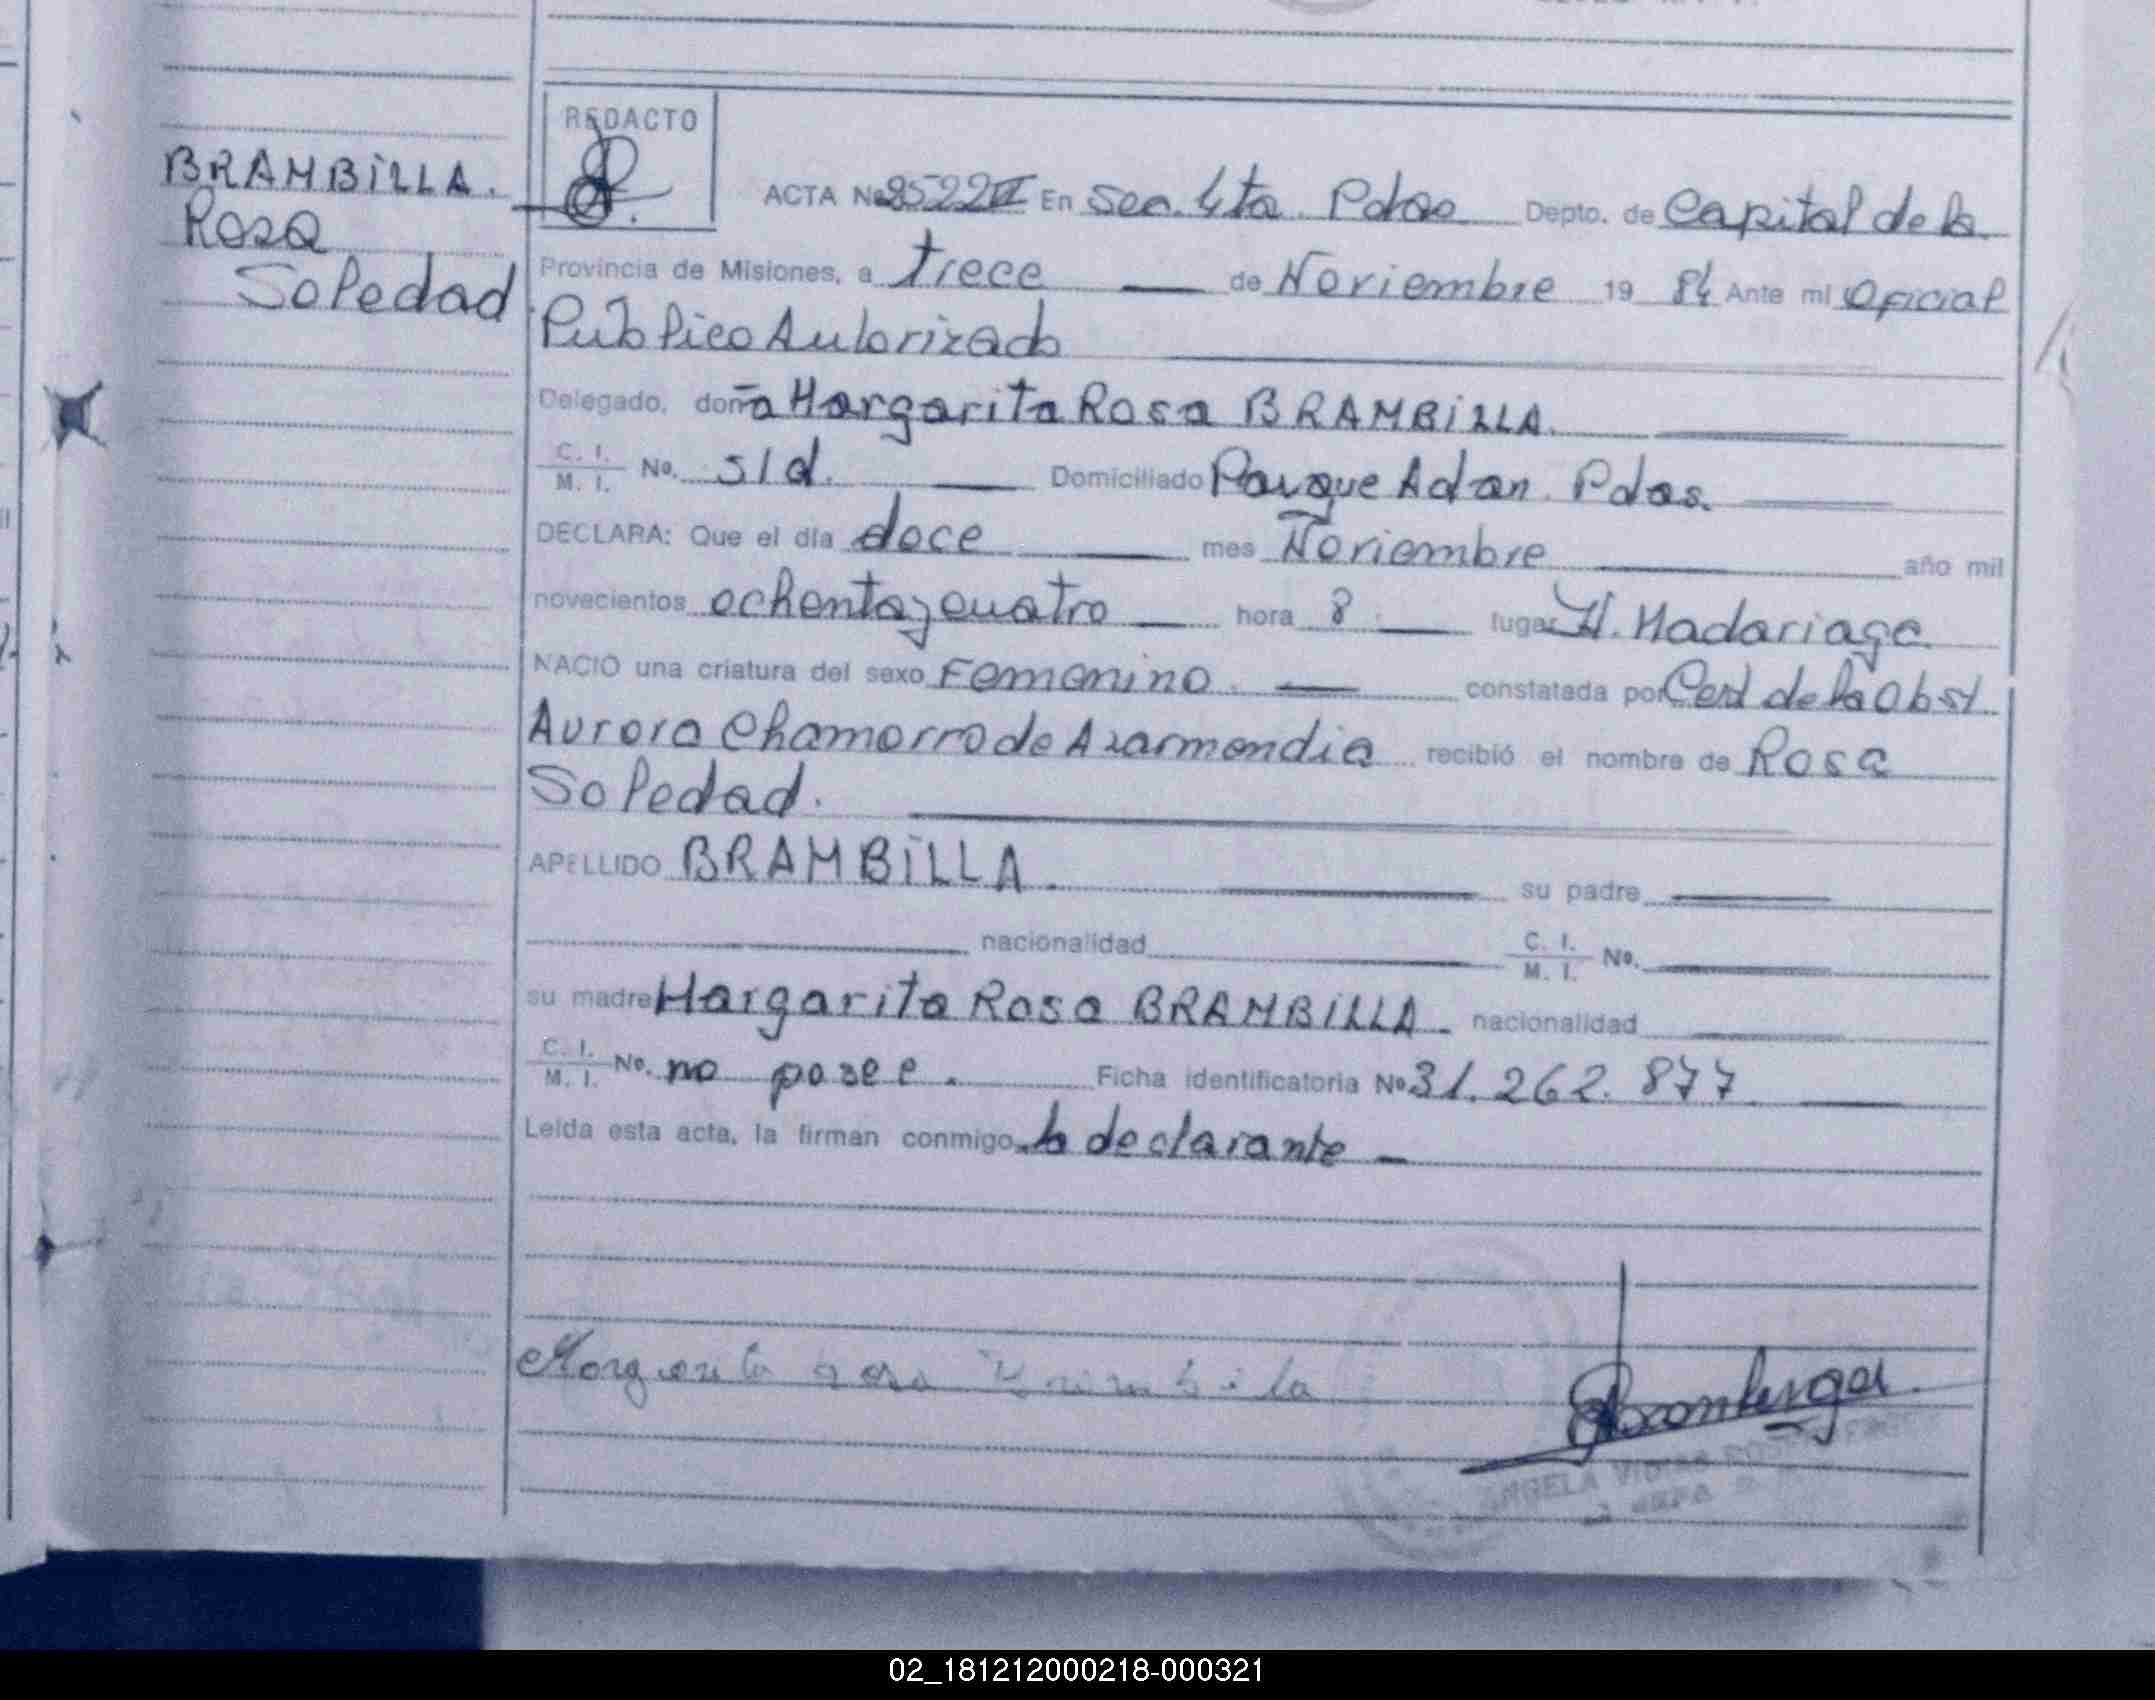 BRAMBILLA.
Rosa
Soledad
REDACTO
ACTA No 8522 En Sec. 4ta Pdas Depto. de Capital de la
Provincia de Misiones, a trece de Noviembre 19 84 Ante mi Oficial
Publico Autorizado
Delegado, doña Margarita Rosa BRAMBILLA.
C. I. M. I. No. s/d. Domiciliado Parque Adan Pdas.
DECLARA: Que el día doce mes Noviembre año mil
novecientos ochenta y cuatro hora 8 lugar H. Madariaga
NACIO una criatura del sexo Femenino. constatada por Cert de la Obst.
Aurora Chamorro de Azarmendia recibió el nombre de Rosa
Soledad.
APELLIDO BRAMBILLA. su padre
nacionalidad C. I. M. I. No.
su madre Margarita Rosa BRAMBILLA nacionalidad
C. I. M. I. No. no posee. Ficha identificatoria No 31.262.877
Leída esta acta, la firman conmigo, la declarante
Margarita Rosa Brambila
ANGELA
02_181212000218-000321